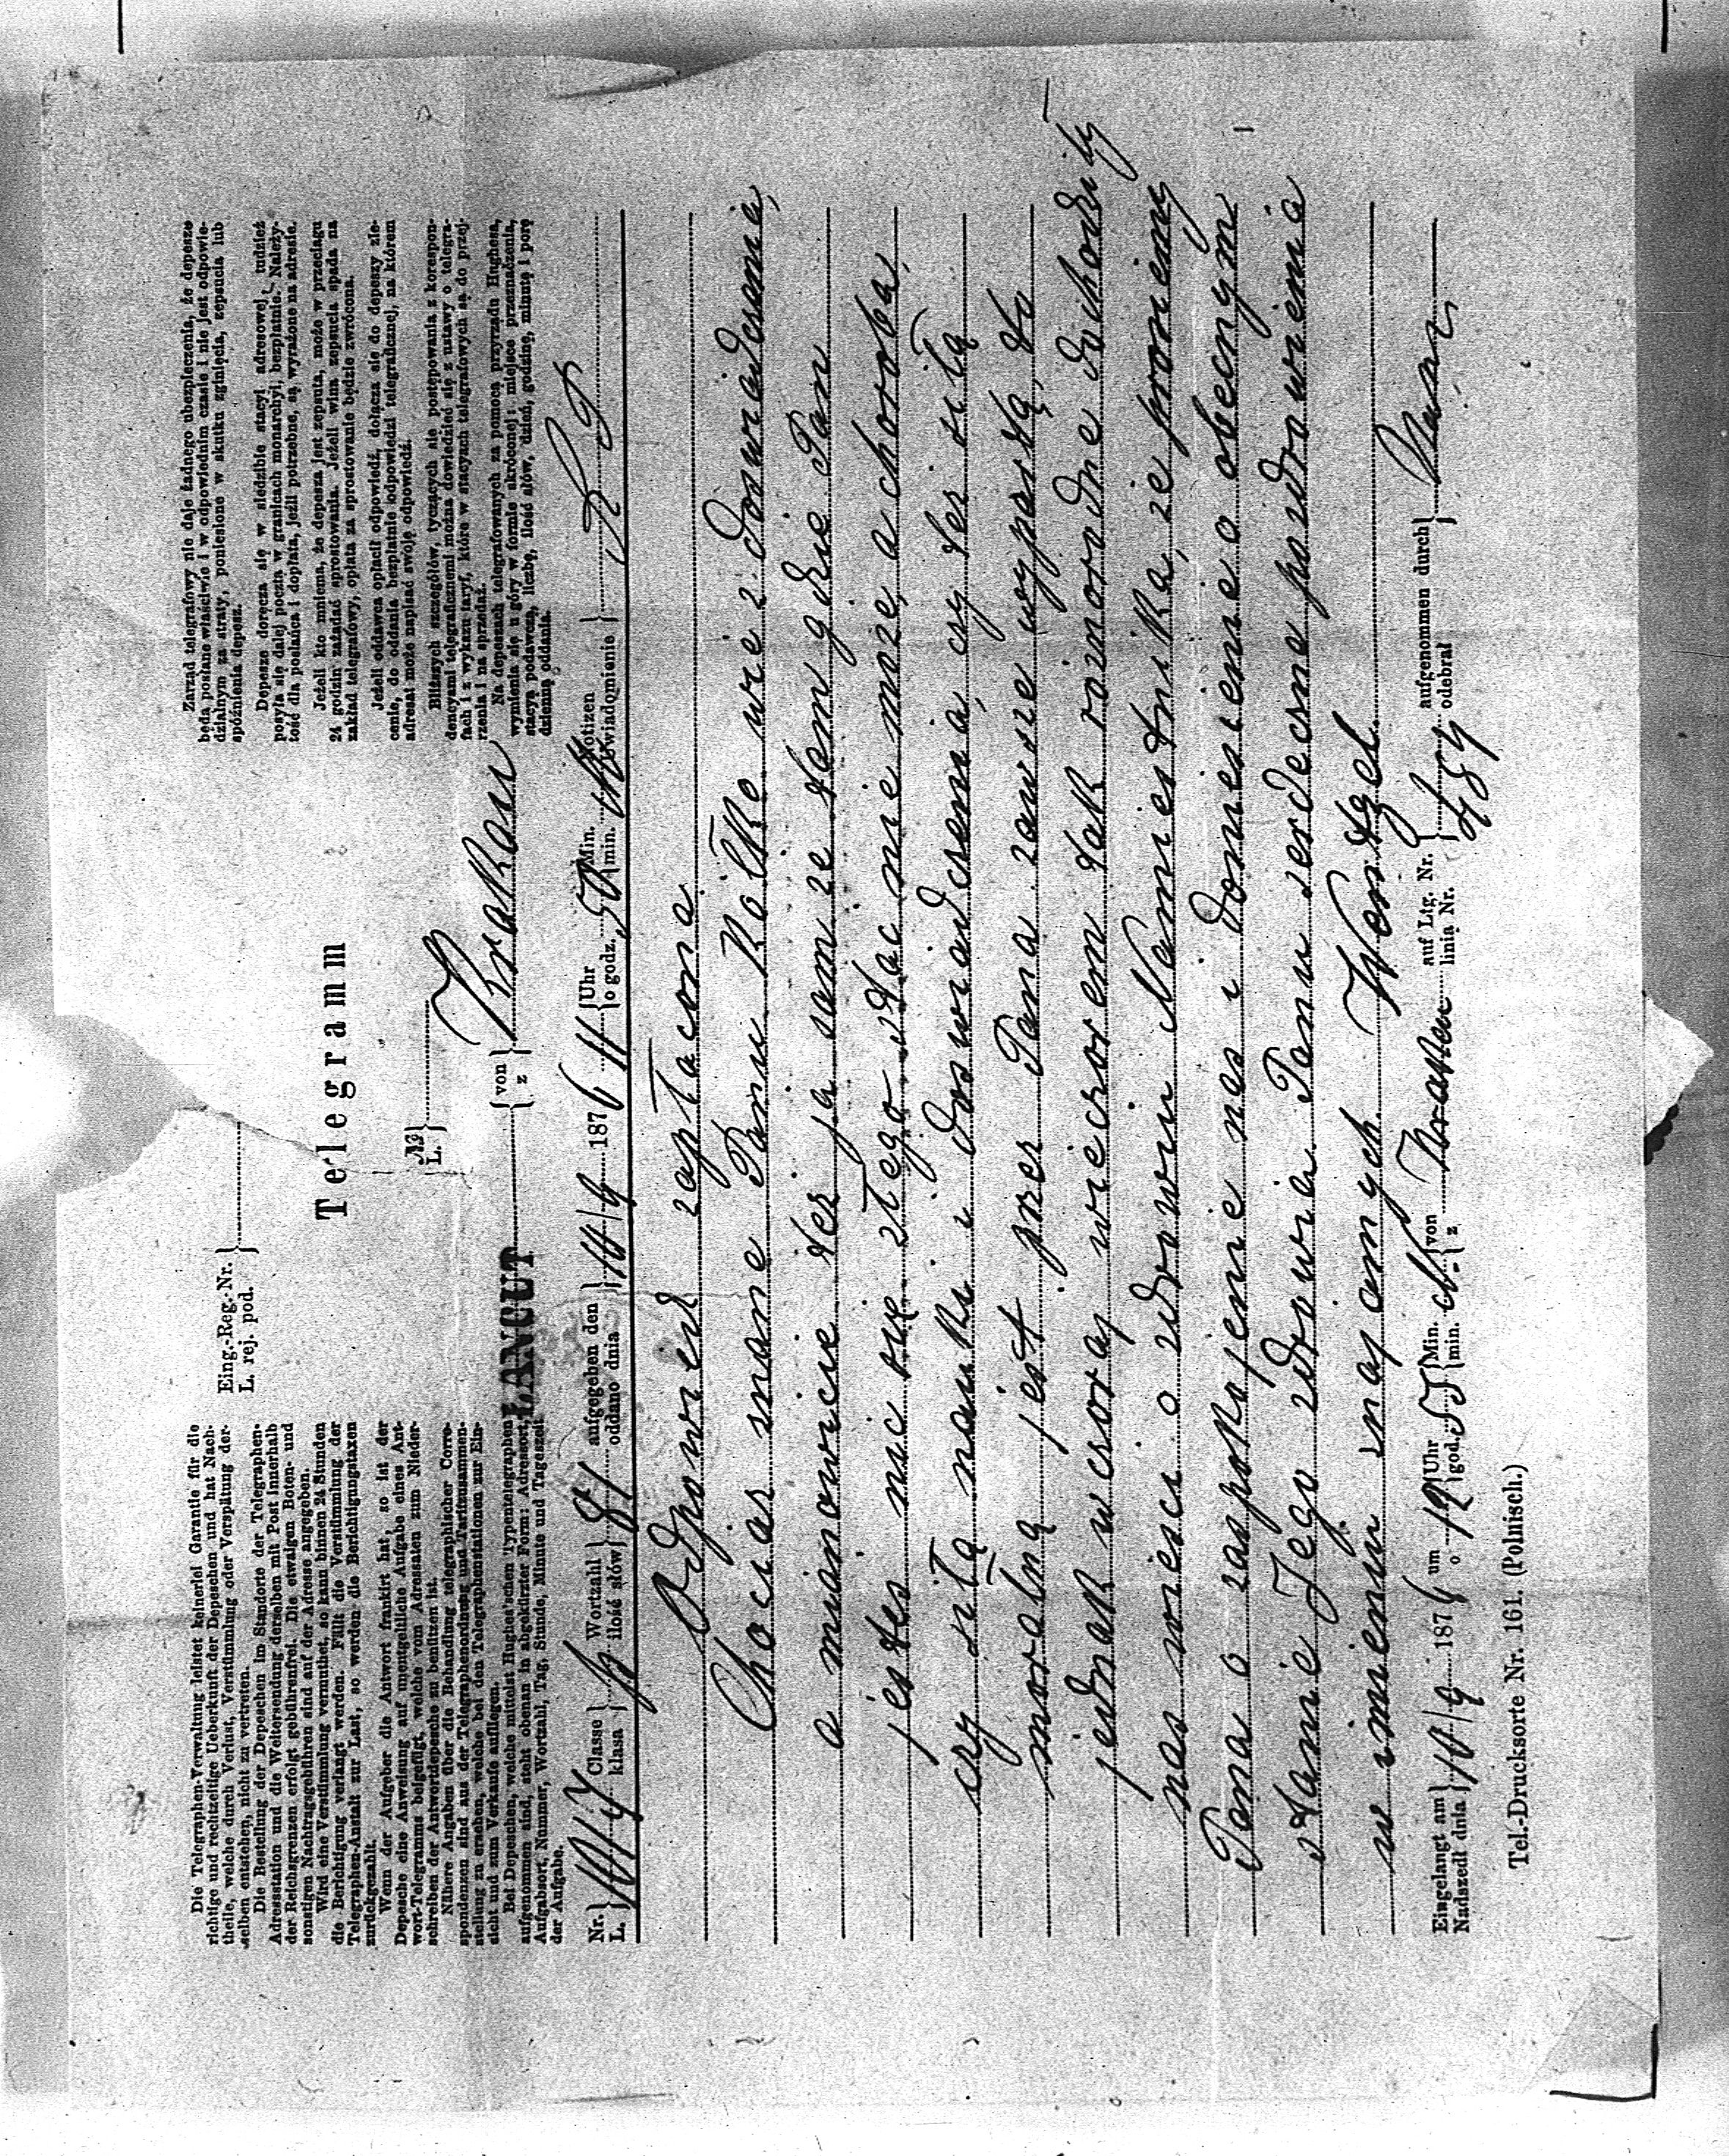 Die Telegraphen-Verwaltung leistet keinerlei Garantie für die
richtige und rechtzeitige Ueberkunft der Depeschen und hat Nach-
theile, welche durch Verlust, Verstümmlung oder Verspätung der-
selben entstehen, nicht zu vertreten.
Die Bestellung der Depeschen im Standorte der Telegraphen-
Adressstation und die Weitersendung derselben mit Post innerhalb
der Reichsgrenzen erfolgt gebührenfrei. Die etwaigen Boten- und
sonstigen Nachtragsgebühren sind auf der Adresse angegeben.
Wird eine Verstümmlung vermuthet, so kann binnen 24 Stunden
die Berichtigung verlangt werden. Fällt die Verstümmlung der
Telegraphen-Anstalt zur Last, so werden die Berichtigungstaxen
zurückgezahlt.
Wenn der Aufgeber die Antwort frankirt hat, so ist der
Depesche eine Anweisung auf unentgeltliche Aufgabe eines Ant-
wort-Telegramms beigefügt, welche vom Adressaten zum Nieder-
schreiben der Antwortdepesche zu benützen ist.
Nähere Angaben über die Behandlung telegraphischer Corre-
spondenzen sind aus der Telegraphenordnung und Tarifzusammen-
stellung zu ersehen, welche bei den Telegraphenstationen zur Ein-
sicht und zum Verkaufe aufliegen.
Bei Depeschen, welche mittelst Hughes'schen Typentelegraphen
aufgenommen sind, steht obenan in abgekürzter Form: Adressort,
Aufgabsort, Nummer, Wortzahl, Tag, Stunde, Minute und Tageszeit
der Aufgabe.
Eing.-Reg.-Nr.
L. rej. pod.
Telegramm
№
L.
LANCUT von z Krakau
Zarząd telegrafowy nie daje żadnego ubezpieczenia, że depesze
będą posłane właściwie i w odpowiednim czasie i nie jest odpowie-
dzialnym za straty, poniesione w skutku zginięcia, zepsucia lub
spóźnienia depesz.
Depesze doręcza się w siedzibie stacyi adresowej, tudzież
posyła się dalej pocztą w granicach monarchyi, bezpłatnie. Należy-
tość dla posłańca i dopłata, jeżli potrzebne, są wyrażone na adresie.
Jeżeli kto mniema, że depesza jest zepsuta, może w przeciągu
24 godzin zażądać sprostowania. Jeżeli wina zepsucia spada na
zakład telegrafowy, opłata za sprostowanie będzie zwrócona.
Jeżeli oddawca opłacił odpowiedź, dołącza się do depeszy zle-
cenie, do oddania bezpłatnie odpowiedzi telegraficznej, na którem
adresat może napisać swoję odpowiedź.
Bliższych szczegółów, tyczących się postępowania z korespon-
dencyami telegraficznemi można dowiedzieć się z ustawy o telegra-
fach i z wykazu taryf, które w stacyach telegrafowych są do przej-
rzenia i na sprzedaż.
Na depeszach telegrafowanych za pomocą przyrządu Hughesa,
wymienia się u góry w formie skróconej: miejsce przeznaczenia,
stacyą podawczą, liczbę, ilość słów, dzień, godzinę, minutę i porę
dzienną oddania.
Nr. L. Classe klasa Wortzahl ilość słów 81 aufgegeben den oddano dnia 10/9 1876 Uhr o godz. 11 Min. min. 50 Notizen Uwiadomienie
Odpowiedź zapłacona
Chociaż znane Panu Rölke wie z doswiadczenia,
a mianowicie też ja sam że tam gdzie Pan
jestes nic się złego stac nie może, a choroba
czy siłą nauki i doswiadczenia, czy też siłą
moralną jest przez Pana zawsze wypartą, to
jednak wczoraj wieczorem tak róznorodne dochodziły
nas wiesci o zdrowiu Namiestnika, że prosiemy
Pana o zaspokojenie nas i doniesienie o obecnym
stanie Jego zdrowia. Panu serdeczne pozdrowienia
w imieniu znajomych Wentzel.
Eingelangt am Nadszedł dnia 10/9 1876 um o 12 Uhr god. 55 Min. min. von z Krakau auf Ltg. Nr. linia Nr. aufgenommen durch odebrał
Tel.-Drucksorte Nr. 161. (Polnisch.)